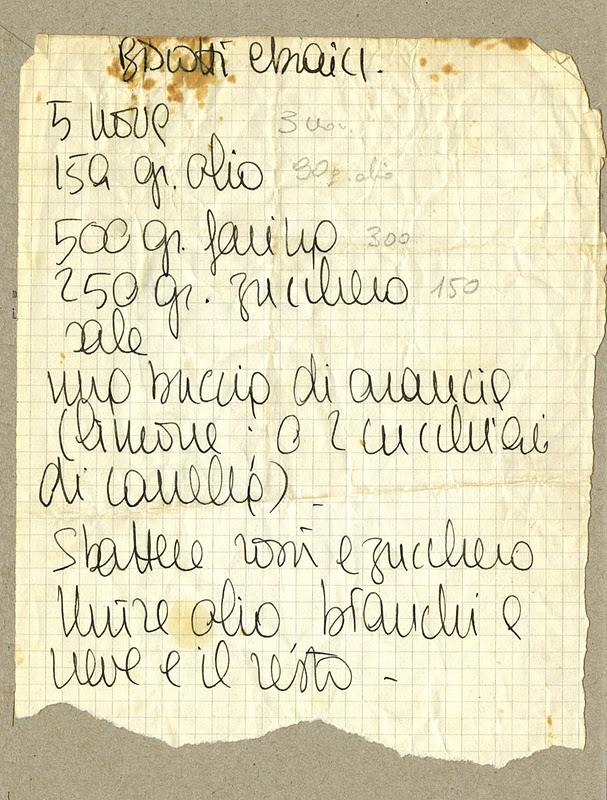 Biscotti ebraici.
5 uova 3 uov.
150 gr. olio 90 g. olio
500 gr. farina 300
250 gr. zucchero 150
sale
una buccia di arancia
(limone ; o 2 cucchiai
di cannella) -
Sbattere rossi e zucchero
Unire olio bianchi a
neve e il resto -